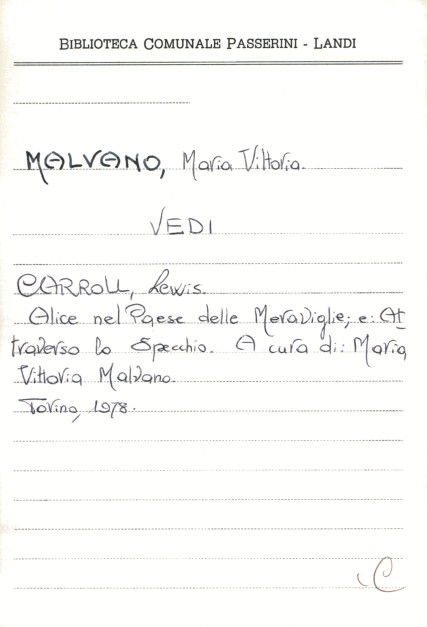 BIBLIOTECA COMUNALE PASSERINI - LANDI
MALVANO, Maria Vittoria.
VEDI
CARROLL, Lewis.
Alice nel Paese delle Meraviglie; e: At
traverso lo Specchio. A cura di: Maria
Vittoria Malvano.
Torino, 1978.
C